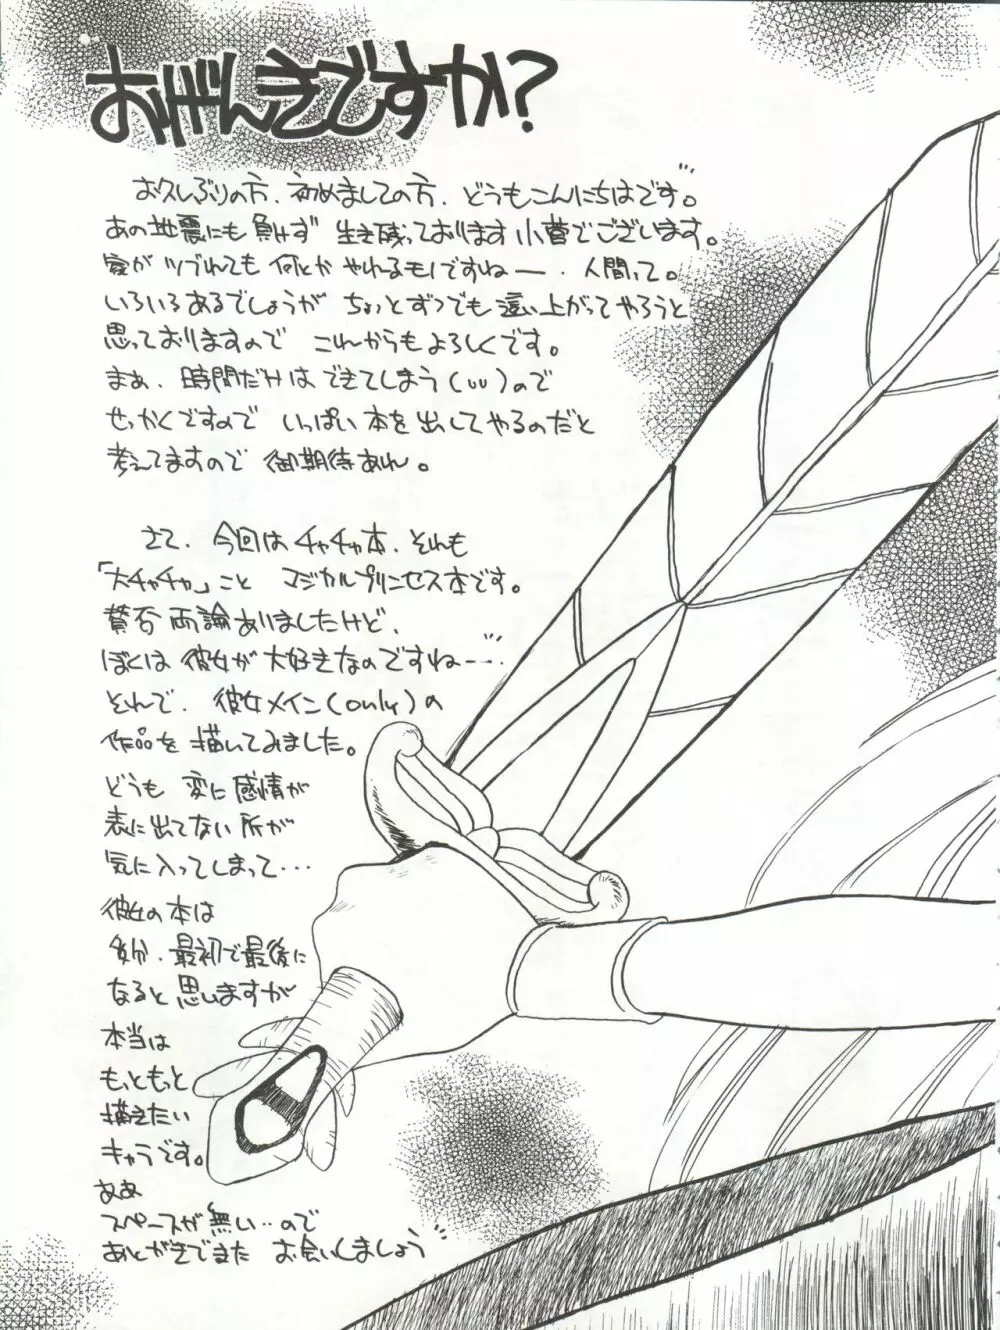 おげんきですか?
お久しぶりの方、初めましての方、どうもこんにちはです。
あの地震にも負けず 生き残っております 小菅でございます。
家がツブれても 何とか やれるモノですねー、人間って。
いろいろあるでしょうが ちょっとずつでも 這い上がってやろうと
思っておりますので これからもよろしくです。
まぁ、時間だけは できてしまう(UU)ので
せっかくですので いっぱい 本を出してやるのだと
考えてますので 御期待あれ。
さて、今回は チャチャ本、それも
「大チャチャ」こと マジカルプリンセス本です。
賛否両論ありましたけど、
ぼくは 彼女が 大好きなのですねー…
それで、彼女メイン(only)の
作品を 描いてみました。
どうも 変に 感情が
表に出てない 所が
気に入ってしまって・・・
彼女の本は
多分、最初で最後に
なると 思いますが
本当は
もっともっと
描きたい
キャラです。
ああ
スペースが無い‥ので
あとがきでまた お会いしましょう